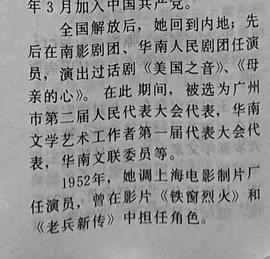 年3月加入中国共产党。
全国解放后，她回到内地；先
后在南影剧团、华南人民剧团任演
员，演出过话剧《美国之音》、《母
亲的心》。在此期间，被选为广州
市第二届人民代表大会代表，华南
文学艺术工作者第一届代表大会代
表，华南文联委员等。
1952年，她调上海电影制片厂
任演员，曾在影片《铁窗烈火》和
《老兵新传》中担任角色。